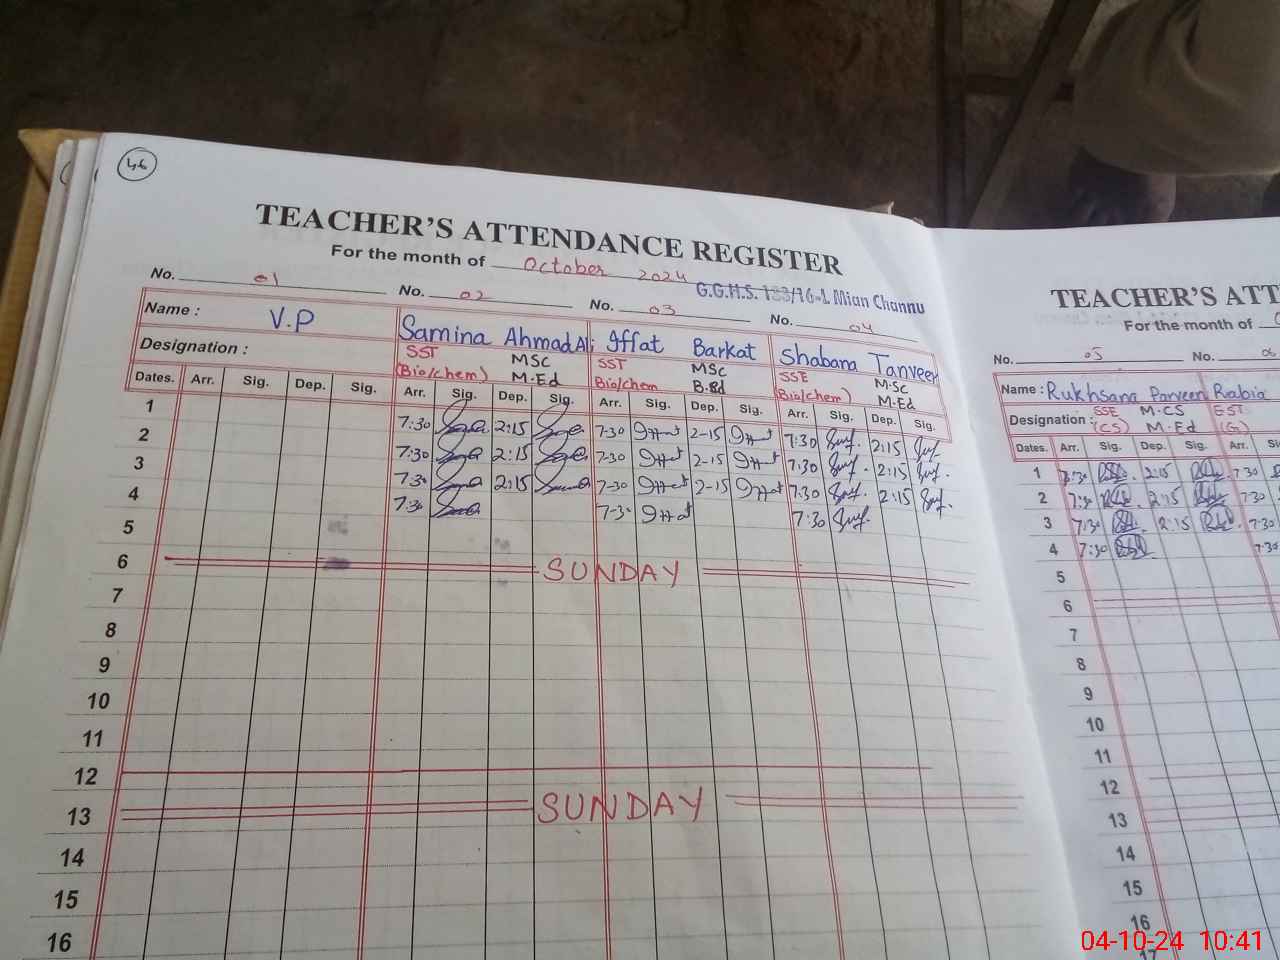 46
TEACHER'S ATTENDANCE REGISTER
For the month of October 2024
G.G.H.S. 133/16-L Mian Channu
No. 01 No. 02 No. 03 No. 04
Name : V.P Samina Ahmad Ali Iffat Barkat Shabana Tanveer
Designation : SST (Bio/chem) MSc M.Ed SST Bio/chem MSc B.Ed SSE (Bio/chem) M.Sc M.Ed
Dates. Arr. Sig. Dep. Sig. Arr. Sig. Dep. Sig. Arr. Sig. Dep. Sig. Arr. Sig. Dep. Sig.
1 7:30 2:15 7-30 Iffat 2-15 Iffat 7:30 2:15
2 7:30 2:15 7-30 Iffat 2-15 Iffat 7:30 2:15
3 7:30 2:15 7-30 Iffat 2-15 Iffat 7:30 2:15
4 7:30 7-30 Iffat 7:30
5
6 SUNDAY
7
8
9
10
11
12
13 SUNDAY
14
15
16
TEACHER'S ATT
For the month of
No. 05 No. 06
Name : Rukhsana Parveen Rabia
Designation : SSE (CS) M.CS M.Ed EST (G)
Dates. Arr. Sig. Dep. Sig. Arr.
1 7:30 2:15 7:30
2 7:30 2:15 7:30
3 7:30 2:15 7:30
4 7:30 7:30
5
6
7
8
9
10
11
12
13
14
15
16
17
04-10-24 10:41